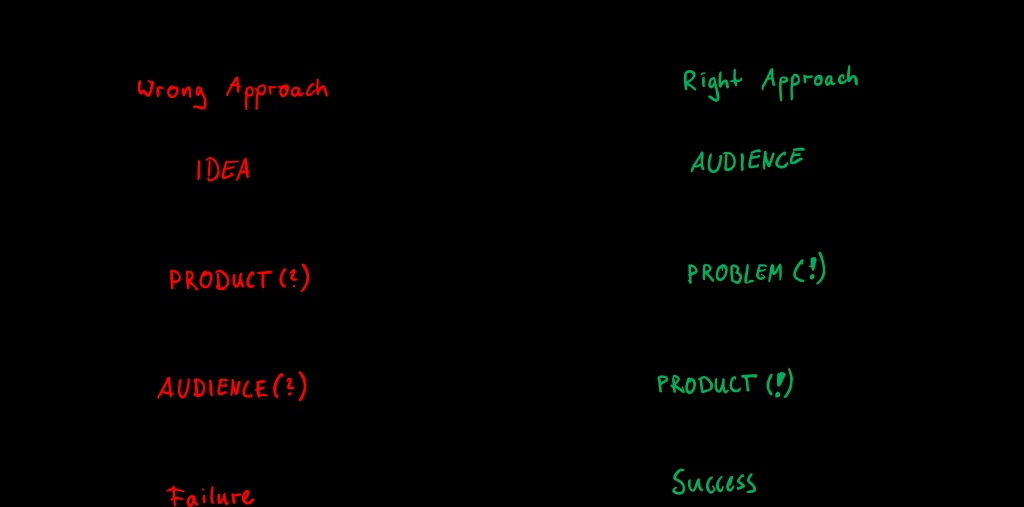 Wrong Approach
IDEA
PRODUCT (?)
AUDIENCE (?)
Failure
Right Approach
AUDIENCE
PROBLEM (!)
PRODUCT (!)
Success